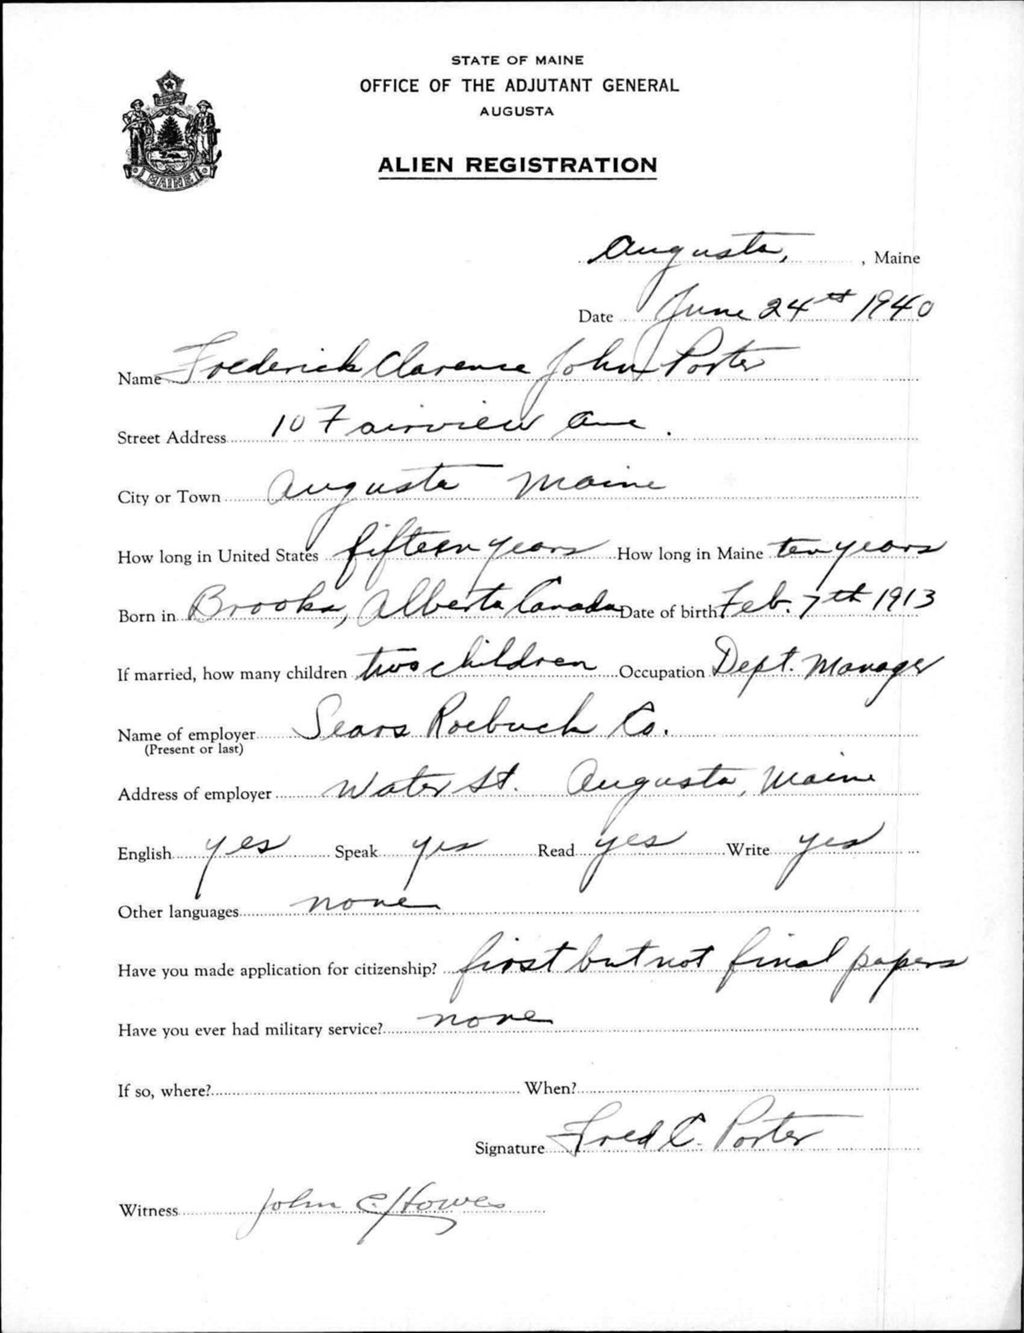 STATE OF MAINE
OFFICE OF THE ADJUTANT GENERAL
AUGUSTA
ALIEN REGISTRATION
MAINE
Augusta, , Maine
Date June 24th 1940
Name Frederick Clarence John Porter
Street Address 10 Fairview Ave.
City or Town Augusta Maine
How long in United States fifteen years How long in Maine ten years
Born in Brooks, Alberta Canada Date of birth Feb. 7th 1913
If married, how many children two children Occupation Dept. Manager
Name of employer Sears Roebuck Co.
(Present or last)
Address of employer Water St. Augusta, Maine
English yes Speak yes Read yes Write yes
Other languages none
Have you made application for citizenship? first but not final papers
Have you ever had military service? none
If so, where? When?
Signature Fred C. Porter
Witness John C. Howes